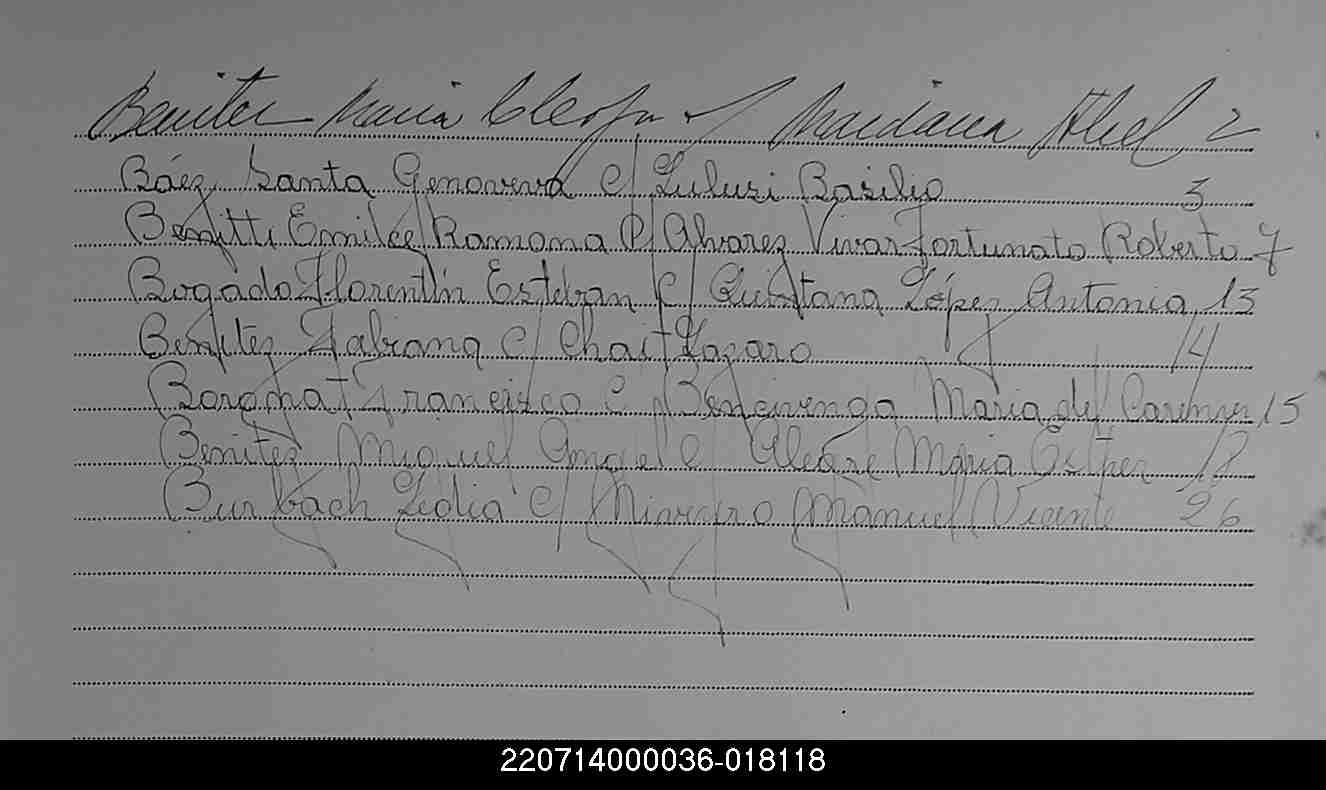 Benitez Maria Cleofa c/ Maidana Abel 2
Báez Santa Genoveva c/ Luluri Basilio 3
Benitti Emilce Ramona c/ Alvarez Vivar Fortunato Roberto 7
Bogado Florentín Esteban c/ Quintana López Antonia 13
Benitez Fabiana c/ Chait Lazaro 14
Francisco c/ Bencivenga Maria del Carmen 15
Benitez Miguel Angel c/ Alegre Maria Ester 18
Burbach Lidia c/ Manuel Vicente 26
220714000036-018118